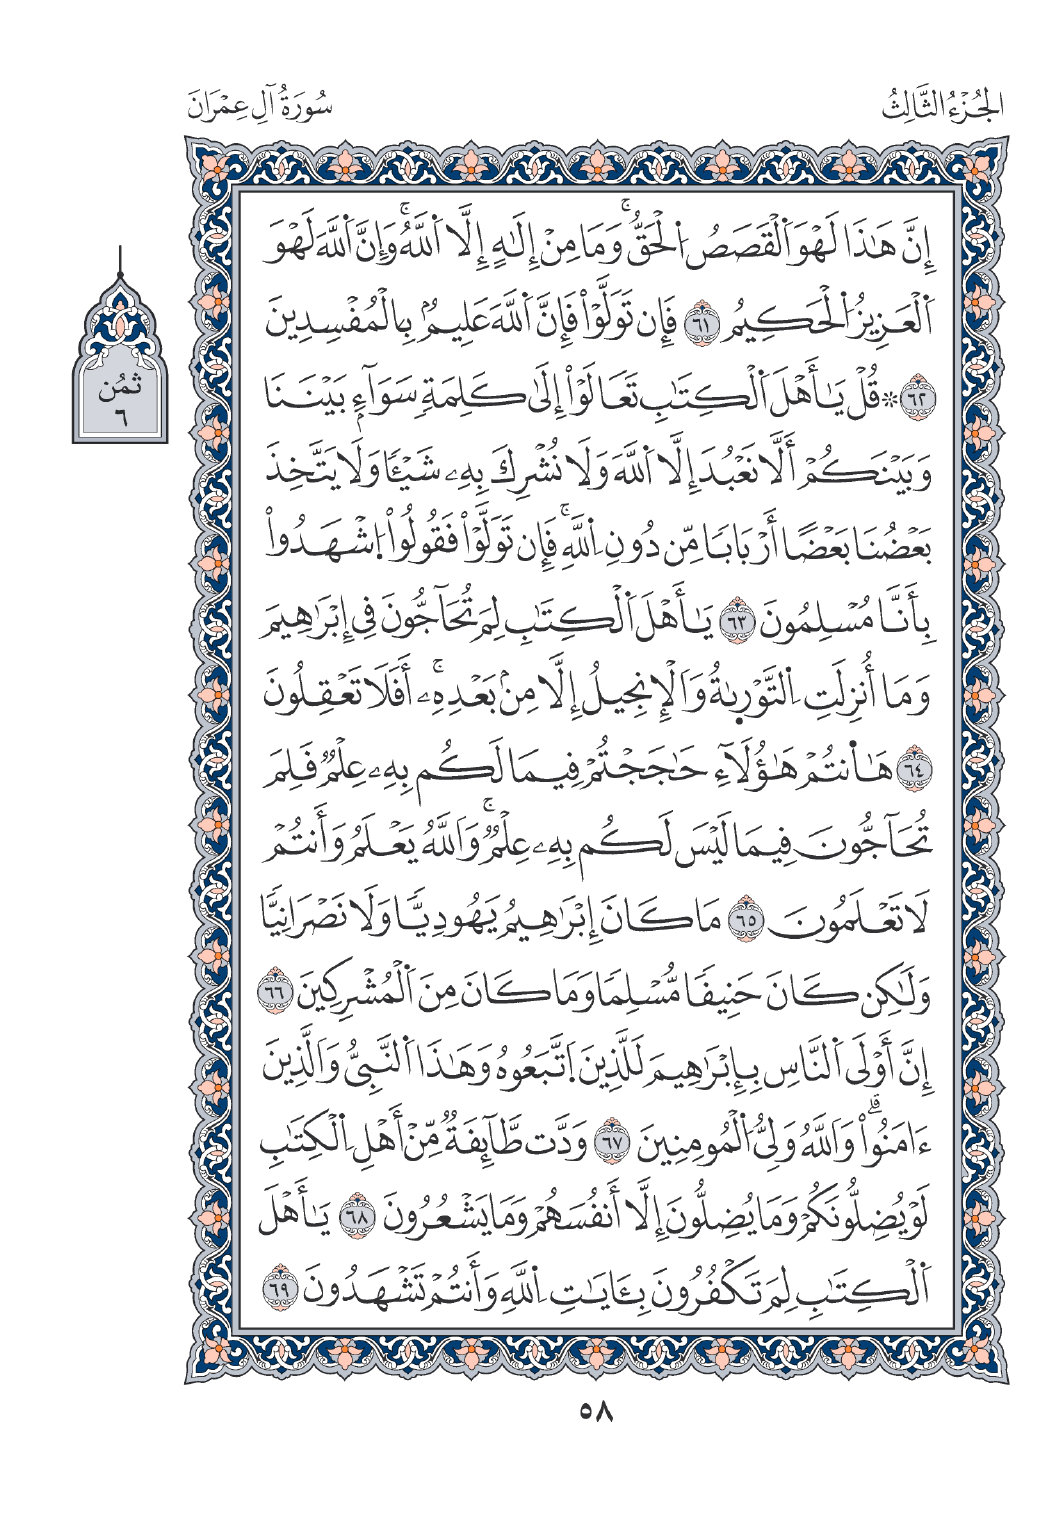 الجُزْءُ الثَّالِثُ
سُورَةُ آلِ عِمْرَانَ
إِنَّ هَٰذَا لَهْوَ اَ۬لْقَصَصُ اُ۬لْحَقُّۖ وَمَا مِنِ اِلَٰهٍ اِلَّا اَ۬للَّهُۖ وَإِنَّ اَ۬للَّهَ لَهْوَ
اَ۬لْعَزِيزُ اُ۬لْحَكِيمُ ٦١ فَإِن تَوَلَّوْاْ فَإِنَّ اَ۬للَّهَ عَلِيمُۢ بِالْمُفْسِدِينَ
٦٢ ۞ قُلْ يَٰأَهْلَ اَ۬لْكِتَٰبِ تَعَالَوِاْ اِلَىٰ كَلِمَةٖ سَوَآءِۢ بَيْنَنَا
وَبَيْنَكُمْ أَلَّا نَعْبُدَ إِلَّا اَ۬للَّهَ وَلَا نُشْرِكَ بِهِۦ شَيْـٔاٗ وَلَا يَتَّخِذَ
بَعْضُنَا بَعْضًا أَرْبَابٗا مِّن دُونِ اِ۬للَّهِۖ فَإِن تَوَلَّوْاْ فَقُولُواْ اُ۪شْهَدُواْ
بِأَنَّا مُسْلِمُونَ ٦٣ يَٰأَهْلَ اَ۬لْكِتَٰبِ لِمَ تُحَآجُّونَ فِي إِبْرَٰهِيمَ
وَمَا أُنزِلَتِ اِ۬لتَّوْر۪ىٰةُ وَالْإِنجِيلُ إِلَّا مِنۢ بَعْدِهِۦۖ أَفَلَا تَعْقِلُونَ
٦٤ هَٰا۬نتُمْ هَٰؤُلَآءِ حَٰجَجْتُمْ فِيمَا لَكُم بِهِۦ عِلْمٞ فَلِمَ
تُحَآجُّونَ فِيمَا لَيْسَ لَكُم بِهِۦ عِلْمٞۖ وَاللَّهُ يَعْلَمُ وَأَنتُمْ
لَا تَعْلَمُونَ ٦٥ مَا كَانَ إِبْرَٰهِيمُ يَهُودِيّٗا وَلَا نَصْرَانِيّٗا
وَلَٰكِن كَانَ حَنِيفٗا مُّسْلِمٗا وَمَا كَانَ مِنَ اَ۬لْمُشْرِكِينَ ٦٦
إِنَّ أَوْلَى اَ۬لنَّاسِ بِإِبْرَٰهِيمَ لَلَّذِينَ اَ۪تَّبَعُوهُ وَهَٰذَا اَ۬لنَّبِيُّ وَالَّذِينَ
ءَامَنُواْۗ وَاللَّهُ وَلِيُّ اُ۬لْمُومِنِينَ ٦٧ وَدَّت طَّآئِفَةٞ مِّنْ أَهْلِ اِ۬لْكِتَٰبِ
لَوْ يُضِلُّونَكُمْ وَمَا يُضِلُّونَ إِلَّا أَنفُسَهُمْ وَمَا يَشْعُرُونَ ٦٨ يَٰأَهْلَ
اَ۬لْكِتَٰبِ لِمَ تَكْفُرُونَ بِـَٔايَٰتِ اِ۬للَّهِ وَأَنتُمْ تَشْهَدُونَ ٦٩
ثمُن
٦
٥٨